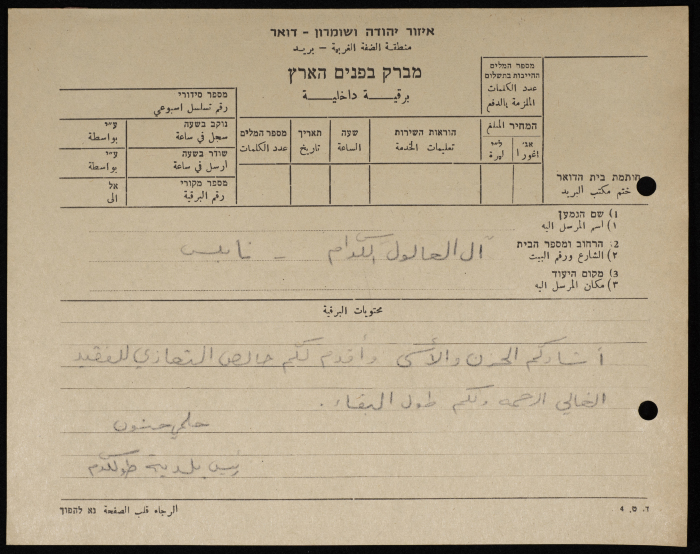 איזור יהודה ושומרון - דואר
منطقة الضفة الغربية – بريد
מברק בפנים הארץ
برقية داخلية
מספר המלים
החייבות בתשלום
عدد الكلمات
الملزمة بالدفع
המחיר المبلغ
אג׳ ל״י
اغورا ليرة
הוראות השירות
تعليمات الخدمة
שעה
الساعة
תאריך
تاريخ
מספר המלים
عدد الكلمات
מספר סידורי
رقم تسلسل اسبوعي
נוקב בשעה ע״י
سجل في ساعة بواسطة
שודר בשעה ע״י
ارسل في ساعة بواسطة
מספר מקורי אל
رقم البرقية الى
חותמת בית הדואר
ختم مكتب البريد
1) שם הנמען
١) اسم المرسل اليه
2. הרחוב ומספר הבית
٢) الشارع ورقم البيت
3) מקום היעוד
٣) مكان المرسل اليه
آل العالول الكرام - نابلس
محتويات البرقية
أشارككم الحزن والأسى وأقدم لكم خالص التعازي للفقيد
الغالي الرحمة ولكم طول البقاء.
حلمي حنون
رئيس بلدية طولكرم
الرجاء قلب الصفحة נא להפוך
ד. ט. 4